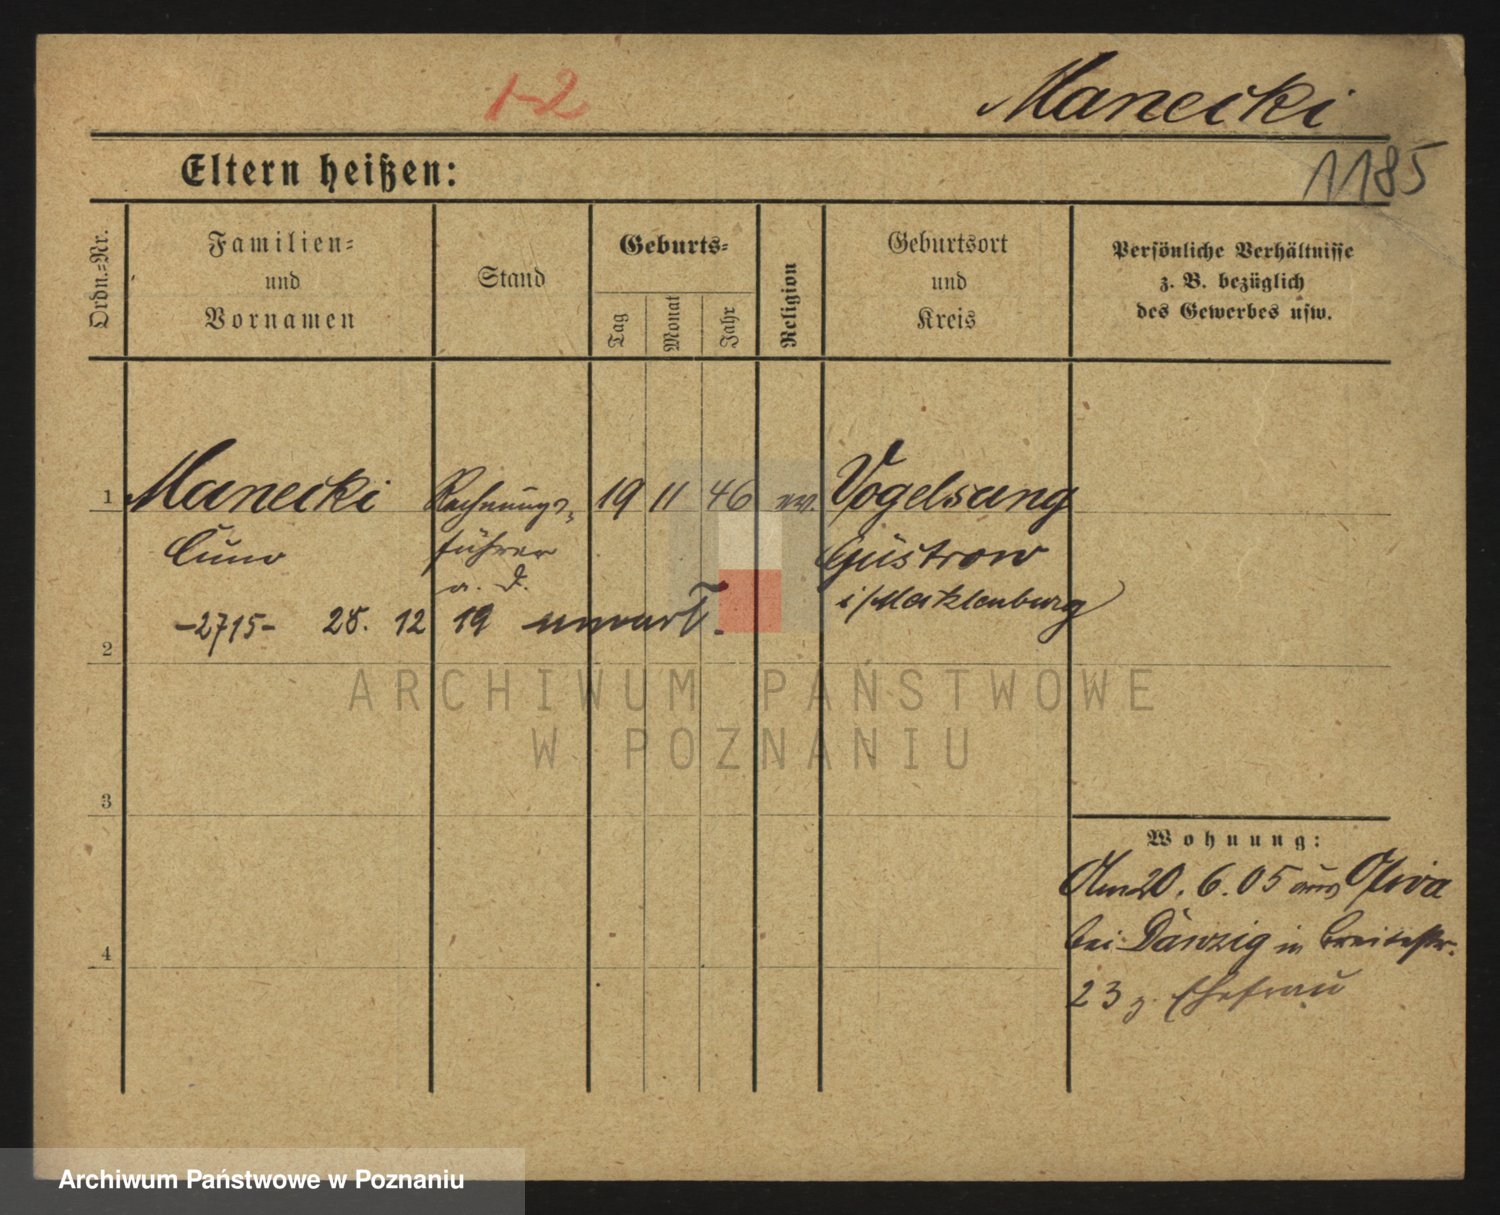 1-2
Manecki
1185
Eltern heißen:
Ordn.-Nr.
Familien-
und
Vornamen
Stand
Geburts-
Tag
Monat
Jahr
Religion
Geburtsort
und
Kreis
Persönliche Verhältnisse
z. B. bezüglich
des Gewerbes usw.
1 Manecki Rechnungs- 19 11 46 ev. Vogelsang
Cuno führer Güstrow
a. D. i/Mecklenburg
-2715- 28. 12 19
2
ARCHIWUM PAŃSTWOWE
W POZNANIU
3
Wohnung:
Am 20. 6. 05 aus Oliva
bei Danzig in Breitestr.
23 z. Ehefrau
4
Archiwum Państwowe w Poznaniu